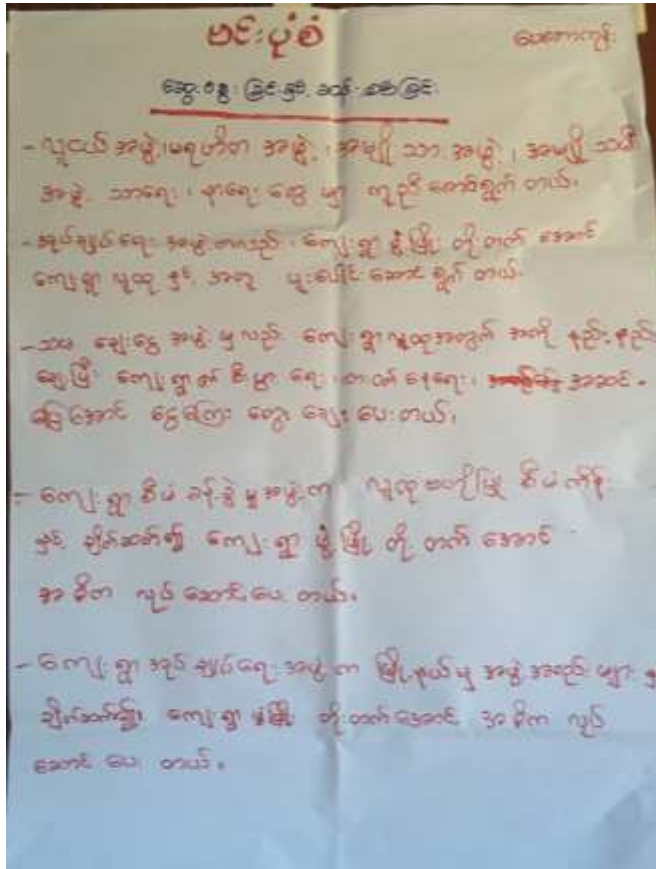 ဗင်းပုံစံ ပေတောကုန်း
ဆွေးနွေးခြင်းနှင့် ခန့်မှန်းခြင်း
- လူငယ် အဖွဲ့၊ ပရဟိတ အဖွဲ့၊ အမျိုးသား အဖွဲ့၊ အမျိုးသမီး
အဖွဲ့ သာရေး၊ နာရေး တွေ မှာ ကူညီ ဆောင်ရွက် တယ်။
- အုပ်ချုပ်ရေး အဖွဲ့ ကျေးရွာ ဖွံ့ဖြိုး တိုးတက် အောင်
ကျေးရွာ လူထု နှင့် အတူ ပူးပေါင်း ဆောင်ရွက် တယ်။
- ချေးငွေ အဖွဲ့ မှ လည်း ကျေးရွာ လူထုအတွက် အတိုး နည်းနည်း
ကျေးရွာ စီးပွားရေး၊ နေရေး၊ အဆင်
ပြေအောင် ငွေကြေး တွေ ချေး ပေး တယ်။
- ကျေးရွာ စီမံ ခန့်ခွဲ မှု အဖွဲ့က လူထု ဗဟိုပြု စီမံကိန်း
နှင့် ချိတ်ဆက်၍ ကျေးရွာ ဖွံ့ဖြိုး တိုး တက် အောင်
အဓိက လုပ် ဆောင် ပေး တယ်။
- ကျေးရွာ အုပ်ချုပ်ရေး အဖွဲ့က မြို့နယ်မှ အဖွဲ့ အစည်း များ
ချိတ်ဆက်၍ ကျေးရွာ ဖွံ့ဖြိုး တိုးတက်အောင် အဓိက လုပ်
ဆောင် ပေး တယ်။